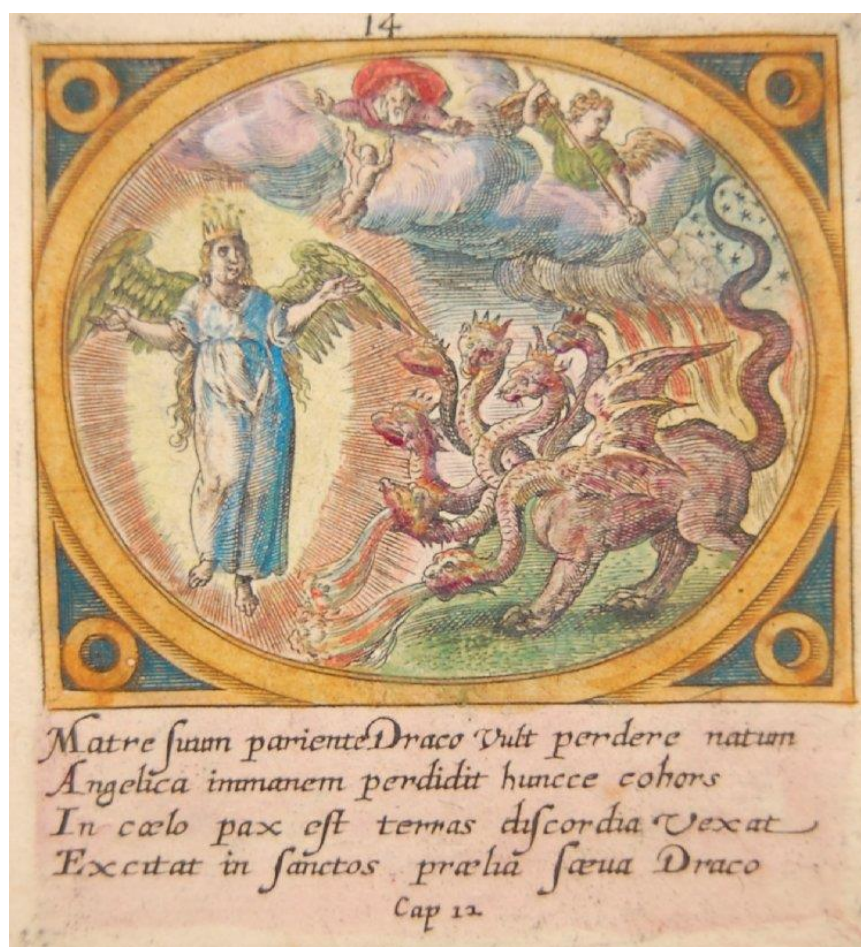 14
Matre suum pariente Draco Vult perdere natum
Angelica immanem perdidit huncce cohors
In cœlo pax est terras discordia Vexat
Excitat in sanctos prælia sæua Draco
Cap 12